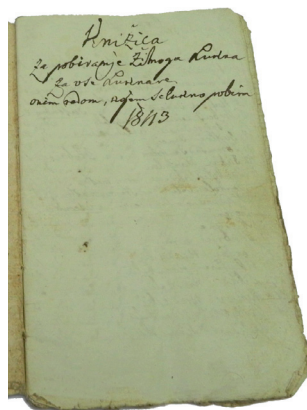 Knižica
za pobiranje Žitnoga Ludna
Za vse Ludnare,
onim redom, kojem se ludno pobira
1843